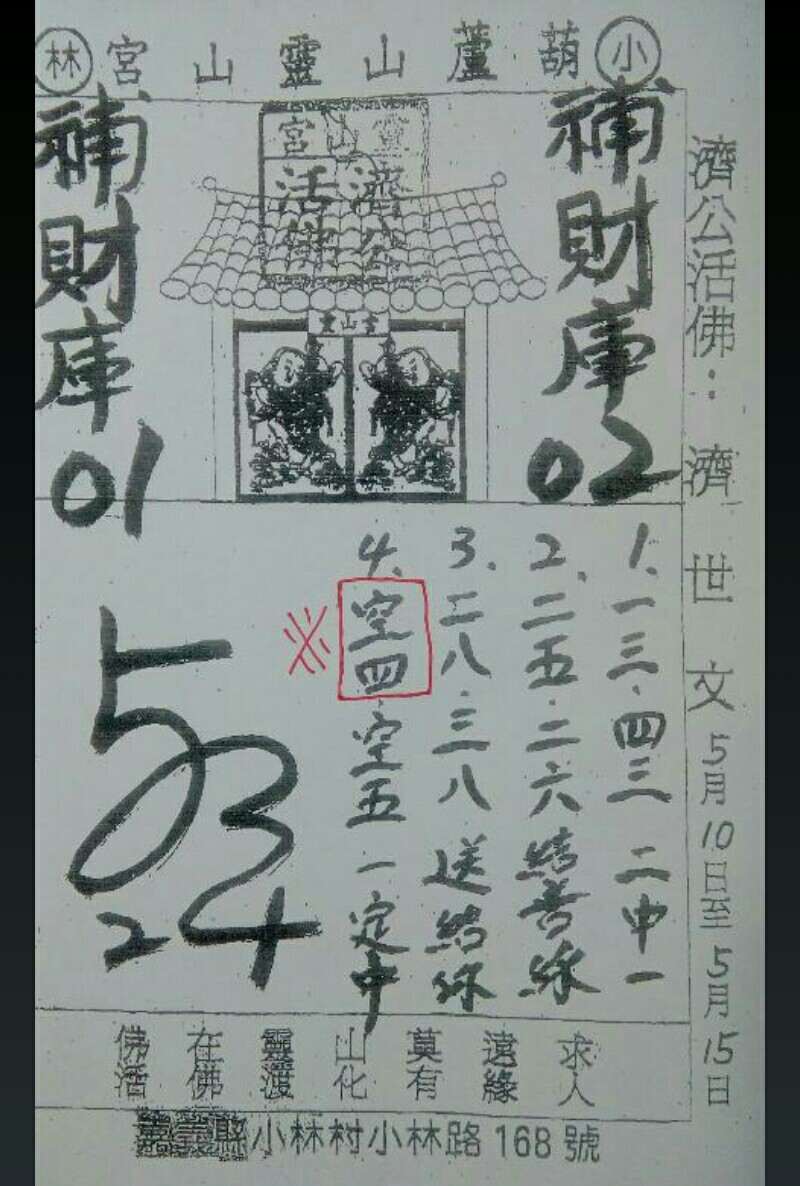 小 葫蘆山靈山宮 林
靈山宮
濟公活佛
補財庫02
補財庫01
濟公活佛：濟世文 5月10日至5月15日
1.一三.四三 二中一
2、二五.二六結善緣
3、二八.三八送結緣
4、空四.空五一定中
※
53
24
求人
遠緣
莫有
山化
靈渡
在佛
佛活
嘉義縣小林村小林路168號